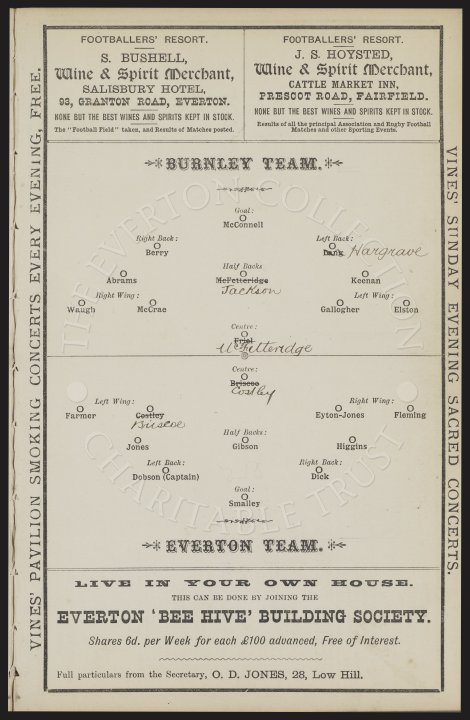 FOOTBALLERS' RESORT.
S. BUSHELL,
Wine & Spirit Merchant,
SALISBURY HOTEL,
93, GRANTON ROAD, EVERTON.
NONE BUT THE BEST WINES AND SPIRITS KEPT IN STOCK.
The "Football Field" taken, and Results of Matches posted.
FOOTBALLERS' RESORT.
J. S. HOYSTED,
Wine & Spirit Merchant,
CATTLE MARKET INN,
PRESCOT ROAD, FAIRFIELD.
NONE BUT THE BEST WINES AND SPIRITS KEPT IN STOCK.
Results of all the principal Association and Rugby Football
Matches and other Sporting Events.
VINES' PAVILION SMOKING CONCERTS EVERY EVENING, FREE.
VINES' SUNDAY EVENING SACRED CONCERTS.
BURNLEY TEAM.
Goal:
McConnell
Right Back: Left Back:
Berry Lang Hargrave
Half Backs
Abrams McFetteridge Keenan
Jackson
Right Wing: Left Wing:
Waugh McCrae Gallogher Elston
Centre:
Friel
McFitteridge
Centre:
Briscoe
Costley
Left Wing: Right Wing:
Farmer Costley Eyton-Jones Fleming
Briscoe
Half Backs:
Jones Gibson Higgins
Left Back: Right Back:
Dobson (Captain) Dick
Goal:
Smalley
EVERTON TEAM.
THE EVERTON COLLECTION
CHARITABLE TRUST
LIVE IN YOUR OWN HOUSE.
THIS CAN BE DONE BY JOINING THE
EVERTON 'BEE HIVE' BUILDING SOCIETY.
Shares 6d. per Week for each £100 advanced, Free of Interest.
Full particulars from the Secretary, O. D. JONES, 28, Low Hill.